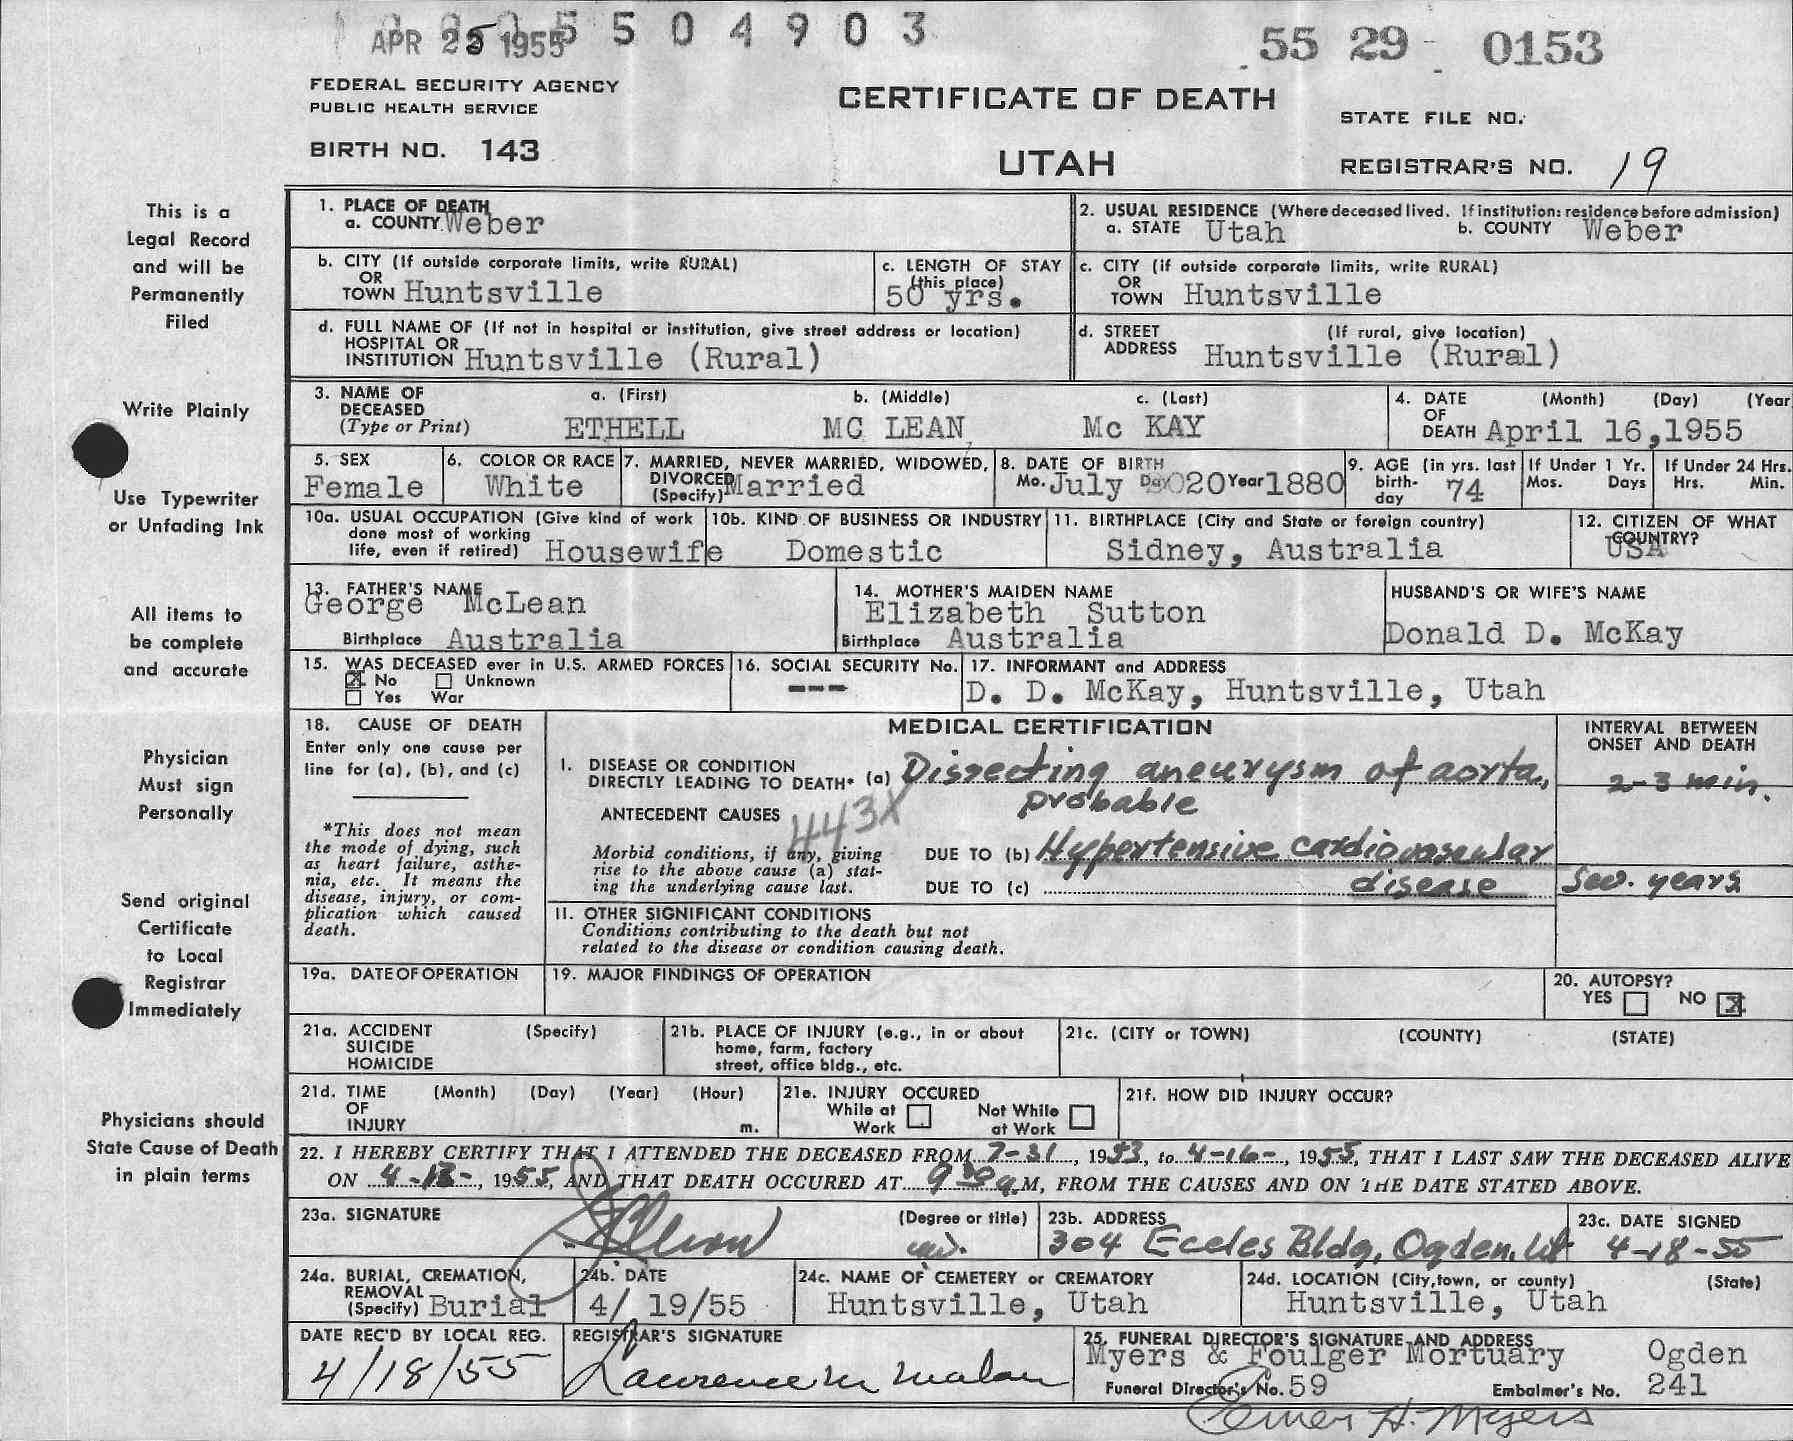 APR 25 1955 5 5 0 4 9 0 3
55 29 - 0153
FEDERAL SECURITY AGENCY
PUBLIC HEALTH SERVICE
CERTIFICATE OF DEATH
STATE FILE NO.
BIRTH NO. 143
UTAH
REGISTRAR'S NO. 19
This is a
Legal Record
and will be
Permanently
Filed
Write Plainly
Use Typewriter
or Unfading Ink
All items to
be complete
and accurate
Physician
Must sign
Personally
Send original
Certificate
to Local
Registrar
Immediately
Physicians should
State Cause of Death
in plain terms
1. PLACE OF DEATH
a. COUNTY Weber
2. USUAL RESIDENCE (Where deceased lived. If institution: residence before admission)
a. STATE Utah b. COUNTY Weber
b. CITY (If outside corporate limits, write RURAL)
OR
TOWN Huntsville
c. LENGTH OF STAY
(this place)
50 yrs.
c. CITY (if outside corporate limits, write RURAL)
OR
TOWN Huntsville
d. FULL NAME OF (If not in hospital or institution, give street address or location)
HOSPITAL OR
INSTITUTION Huntsville (Rural)
d. STREET (If rural, give location)
ADDRESS Huntsville (Rural)
3. NAME OF DECEASED
(Type or Print)
a. (First) b. (Middle) c. (Last)
ETHELL MC LEAN Mc KAY
4. DATE (Month) (Day) (Year
OF
DEATH April 16, 1955
5. SEX
Female
6. COLOR OR RACE
White
7. MARRIED, NEVER MARRIED, WIDOWED,
DIVORCED
(Specify) Married
8. DATE OF BIRTH
Mo. July Day 20 Year 1880
9. AGE (in yrs. last
birth-
day 74
If Under 1 Yr.
Mos. Days
If Under 24 Hrs.
Hrs. Min.
10a. USUAL OCCUPATION (Give kind of work
done most of working
life, even if retired) Housewife
10b. KIND OF BUSINESS OR INDUSTRY
Domestic
11. BIRTHPLACE (City and State or foreign country)
Sidney, Australia
12. CITIZEN OF WHAT
COUNTRY?
USA
13. FATHER'S NAME
George McLean
Birthplace Australia
14. MOTHER'S MAIDEN NAME
Elizabeth Sutton
Birthplace Australia
HUSBAND'S OR WIFE'S NAME
Donald D. McKay
15. WAS DECEASED ever in U.S. ARMED FORCES
X No Unknown
Yes War
16. SOCIAL SECURITY No.
---
17. INFORMANT and ADDRESS
D. D. McKay, Huntsville, Utah
18. CAUSE OF DEATH
Enter only one cause per
line for (a), (b), and (c)
*This does not mean
the mode of dying, such
as heart failure, asthe-
nia, etc. It means the
disease, injury, or com-
plication which caused
death.
MEDICAL CERTIFICATION
INTERVAL BETWEEN
ONSET AND DEATH
I. DISEASE OR CONDITION
DIRECTLY LEADING TO DEATH* (a) Dissecting aneurysm of aorta, 2-3 min.
probable
ANTECEDENT CAUSES
443X
Morbid conditions, if any, giving
rise to the above cause (a) stat-
ing the underlying cause last.
DUE TO (b) Hypertensive cardiovascular
DUE TO (c) disease Sev. years
II. OTHER SIGNIFICANT CONDITIONS
Conditions contributing to the death but not
related to the disease or condition causing death.
19a. DATE OF OPERATION
19. MAJOR FINDINGS OF OPERATION
20. AUTOPSY?
YES NO X
21a. ACCIDENT (Specify)
SUICIDE
HOMICIDE
21b. PLACE OF INJURY (e.g., in or about
home, farm, factory
street, office bldg., etc.
21c. (CITY or TOWN) (COUNTY) (STATE)
21d. TIME (Month) (Day) (Year) (Hour)
OF
INJURY m.
21e. INJURY OCCURED
While at Work Not While at Work
21f. HOW DID INJURY OCCUR?
22. I HEREBY CERTIFY THAT I ATTENDED THE DECEASED FROM 7-31, 1953, to 4-16-, 1955, THAT I LAST SAW THE DECEASED ALIVE
ON 4-13-, 1955, AND THAT DEATH OCCURED AT 9 30 a.M, FROM THE CAUSES AND ON THE DATE STATED ABOVE.
23a. SIGNATURE (Degree or title)
23b. ADDRESS
304 Eccles Bldg, Ogden, Ut
23c. DATE SIGNED
4-18-55
24a. BURIAL, CREMATION,
REMOVAL
(Specify) Burial
24b. DATE
4/ 19/55
24c. NAME OF CEMETERY or CREMATORY
Huntsville, Utah
24d. LOCATION (City, town, or county) (State)
Huntsville, Utah
DATE REC'D BY LOCAL REG.
4/18/55
REGISTRAR'S SIGNATURE
Lawrence M Malan
25. FUNERAL DIRECTOR'S SIGNATURE AND ADDRESS
Myers & Foulger Mortuary Ogden
Funeral Director's No. 59 Embalmer's No. 241
Elmer H. Myers